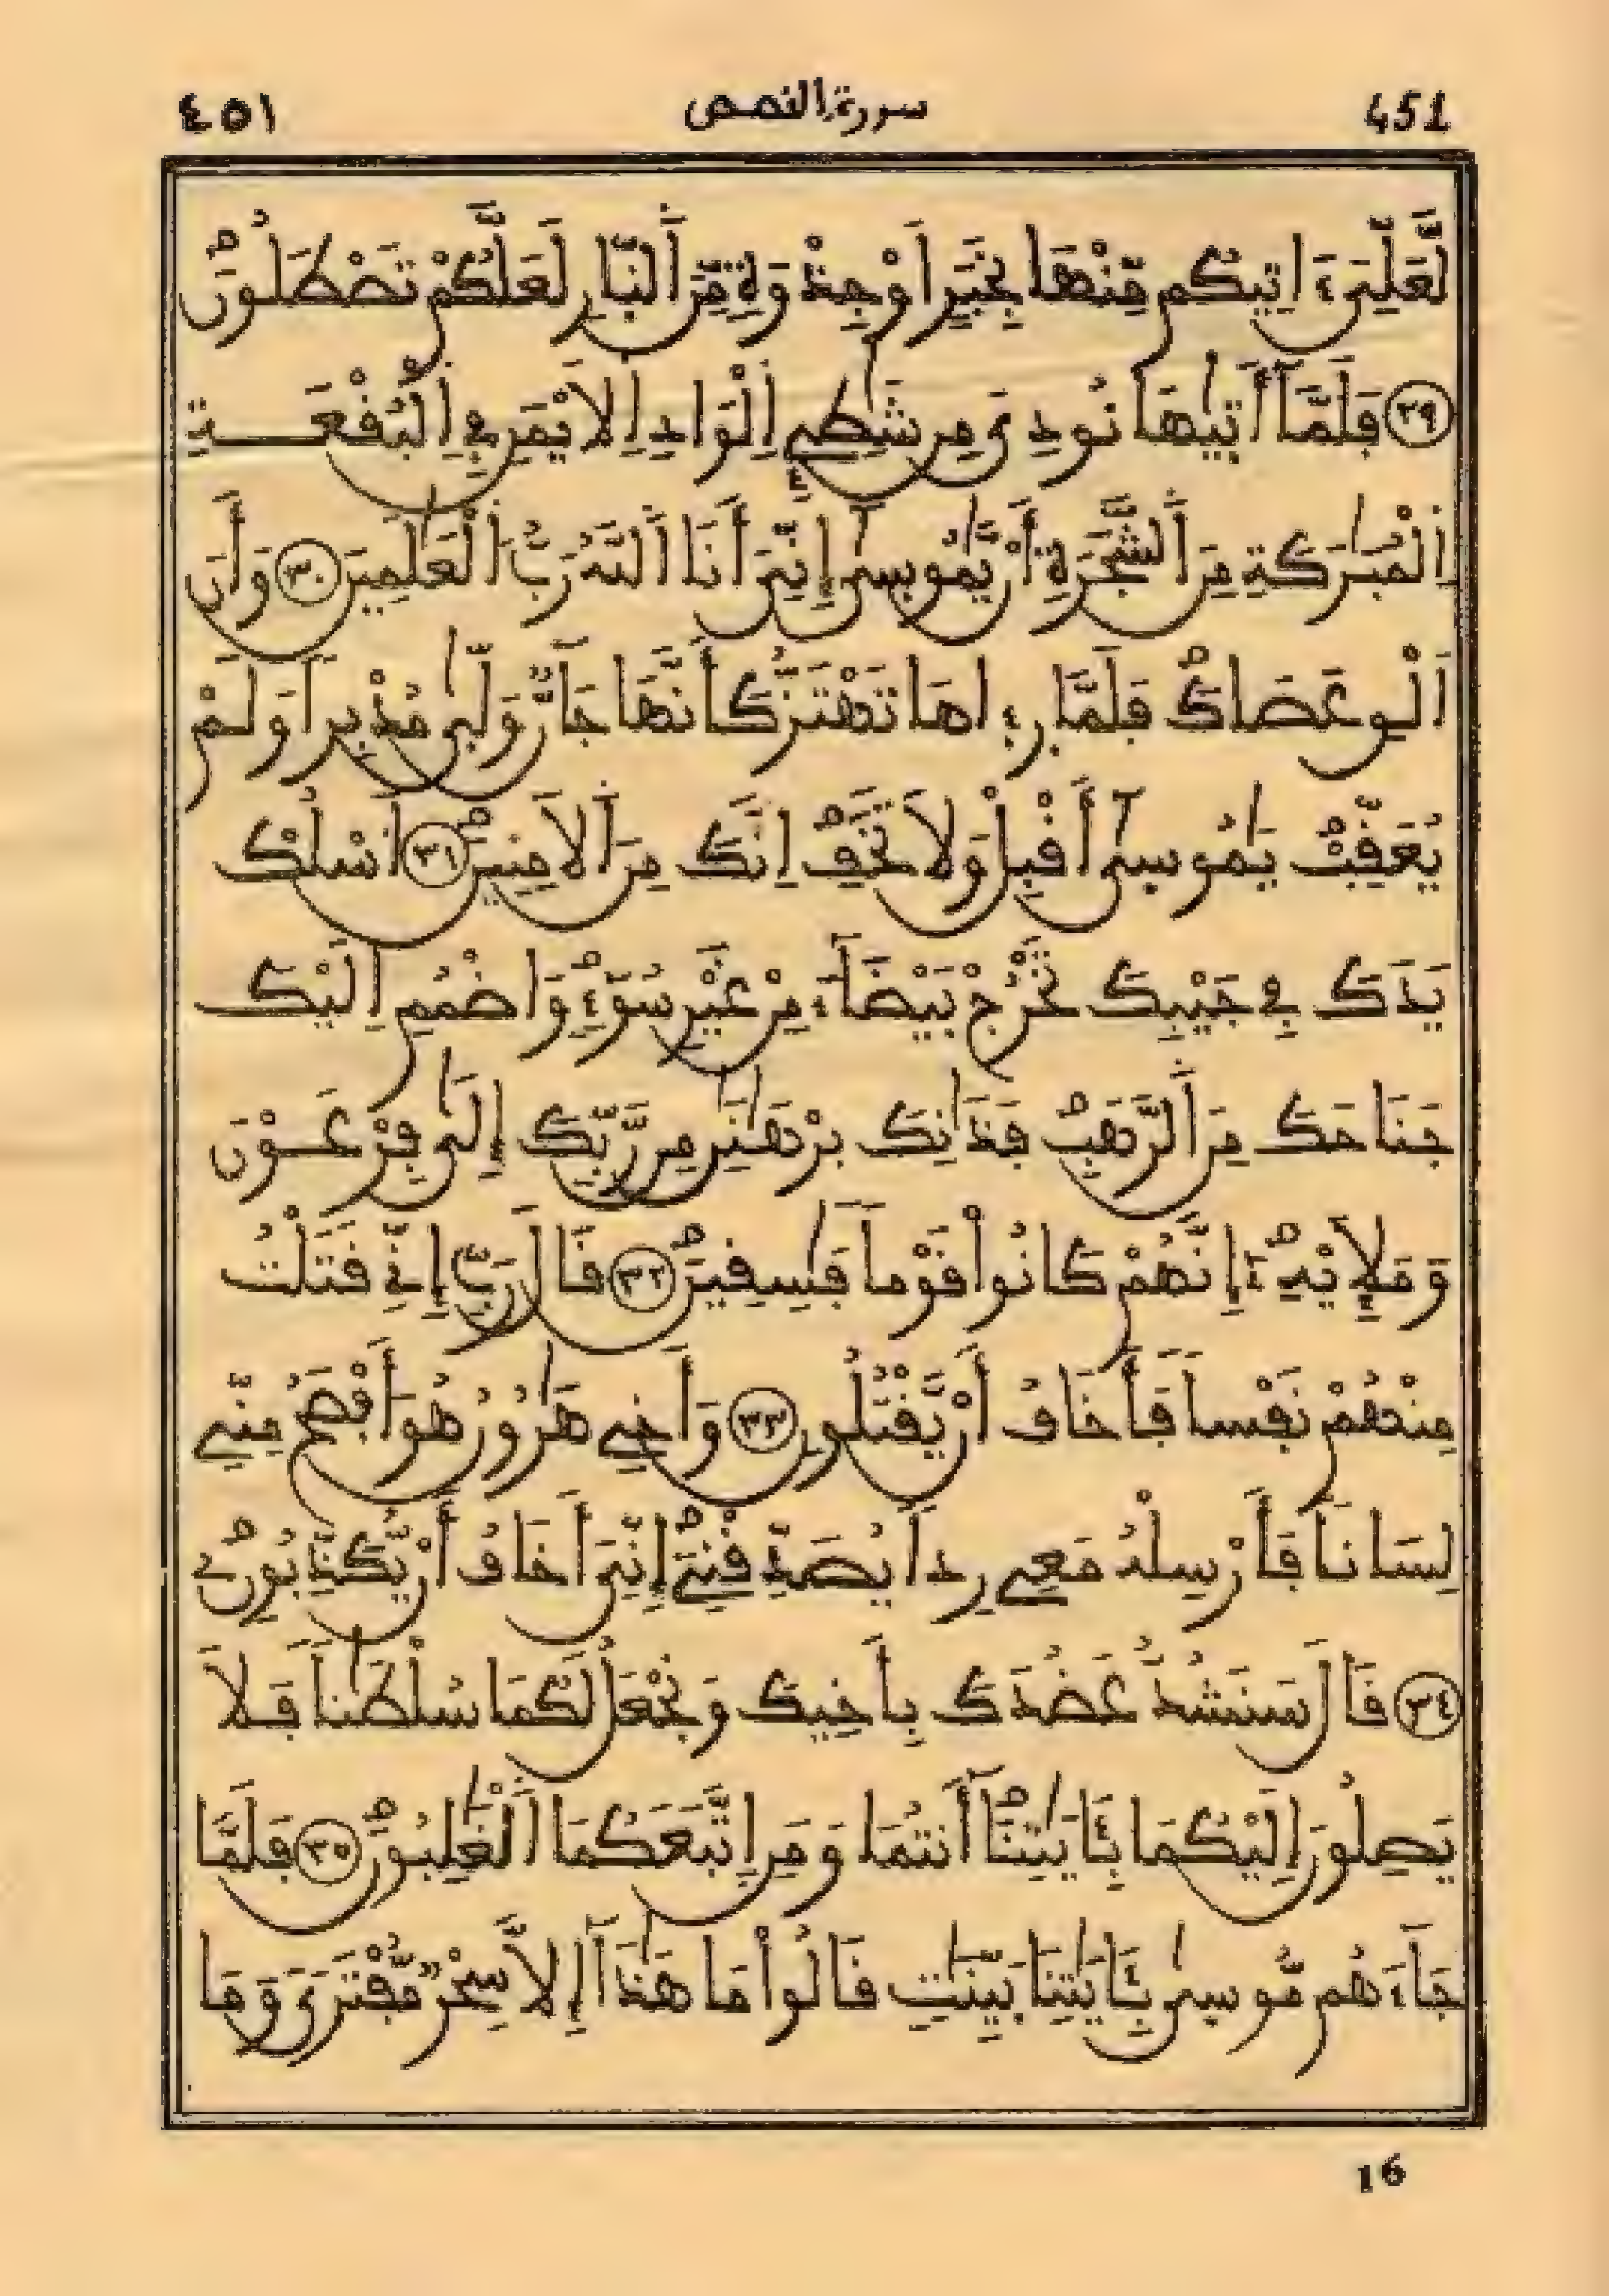 451 سورة القصص ٤٥١
لَّعَلِّيَ ءَاتِيكُم مِّنْهَا بِخَبَرٍ اَوْ جِذْوَةٖ مِّنَ اَ۬لنّ۪ارِ لَعَلَّكُمْ تَصْطَلُونَۖ
(٢٩) فَلَمَّآ أَت۪يٰهَا نُودِيَ مِن شَٰطِےِٕ اِ۬لْوَادِ اِ۬لَايْمَنِ فِے اِ۬لْبُقْعَةِ
اِ۬لْمُبَٰرَكَةِ مِنَ اَ۬لشَّجَرَةِ أَنْ يَّٰمُوس۪ىٰٓ إِنِّيَ أَنَا اَ۬للَّهُ رَبُّ اُ۬لْعَٰلَمِينَ (٣٠) وَأَنَ
اَلْقِ عَصَاكَۖ فَلَمَّا ر۪ء۪اهَا تَهْتَزُّ كَأَنَّهَا جَآنّٞ وَلّ۪ىٰ مُدْبِراٗ وَلَمْ
يُعَقِّبْۖ يَٰمُوس۪ىٰٓ أَقْبِلْ وَلَا تَخَفِۖ اِنَّكَ مِنَ اَ۬لَامِنِينَۖ (٣١) اَ۟سْلُكْ
يَدَكَ فِے جَيْبِكَ تَخْرُجْ بَيْضَآءَ مِنْ غَيْرِ سُوٓءٖۖ وَاضْمُمِ اِلَيْكَ
جَنَاحَكَ مِنَ اَ۬لرَّهَبِۖ فَذَٰنِكَ بُرْهَٰنَٰنِ مِن رَّبِّكَ إِلَىٰ فِرْعَوْنَ
وَمَلَإِيْهِۦٓۖ إِنَّهُمْ كَانُواْ قَوْماٗ فَٰسِقِينَۖ (٣٢) قَالَ رَبِّ إِنِّے قَتَلْتُ
مِنْهُمْ نَفْساٗ فَأَخَافُ أَنْ يَّقْتُلُونِ (٣٣) وَأَخِے هَٰرُونُ هُوَ أَفْصَحُ مِنِّے
لِسَاناٗ فَأَرْسِلْهُ مَعِے رِداٗ يُصَدِّقْنِےٓۖ إِنِّيَ أَخَافُ أَنْ يُّكَذِّبُونِۦۖ
(٣٤) قَالَ سَنَشُدُّ عَضُدَكَ بِأَخِيكَ وَنَجْعَلُ لَكُمَا سُلْطَٰناٗ فَلَا
يَصِلُونَ إِلَيْكُمَا بِـَٔايَٰتِنَآۖ أَنتُمَا وَمَنِ اِ۪تَّبَعَكُمَا اَ۬لْغَٰلِبُونَۖ (٣٥) فَلَمَّا
جَآءَهُم مُّوس۪ىٰ بِـَٔايَٰتِنَا بَيِّنَٰتٖ قَالُواْ مَا هَٰذَآ إِلَّا سِحْرٞ مُّفْتَرىٗ وَمَا
16